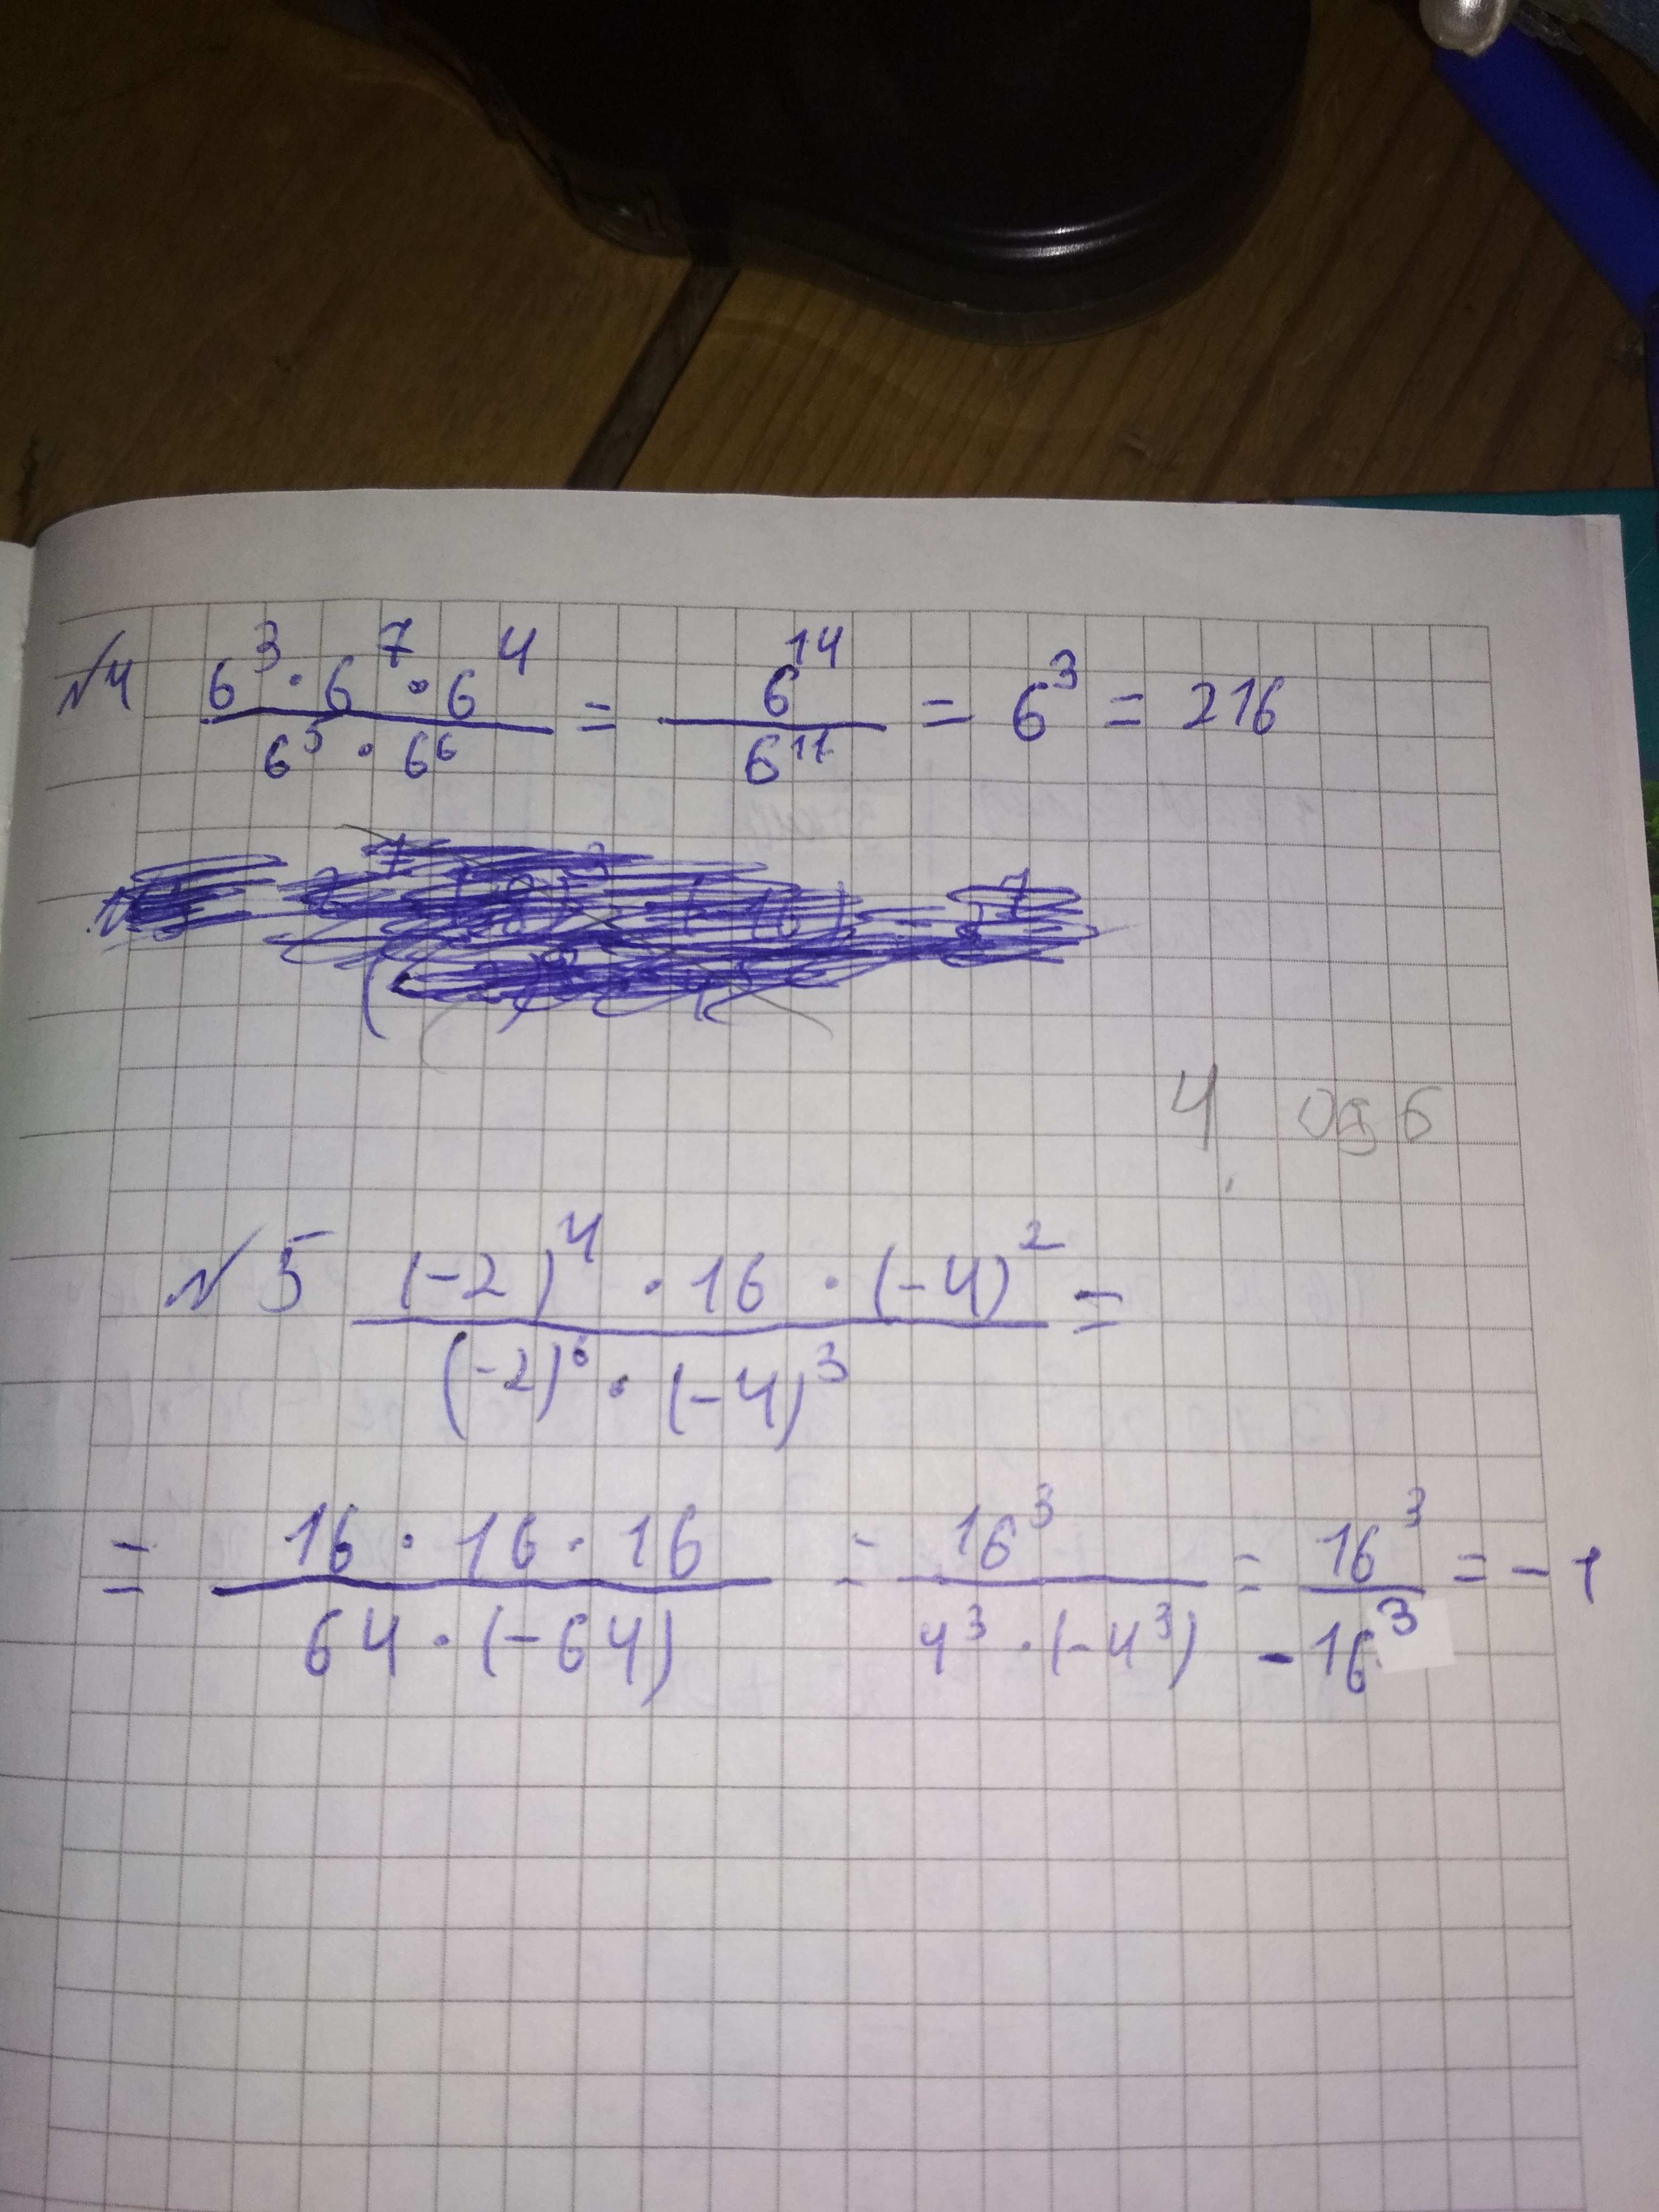 №4 6³·6⁷·6⁴ / 6⁵·6⁶ = 6¹⁴ / 6¹¹ = 6³ = 216
4
№5 (-2)⁴·16·(-4)² / (-2)⁶·(-4)³ =
= 16·16·16 / 64·(-64) = 16³ / 4³·(-4³) = 16³ / -16³ = -1